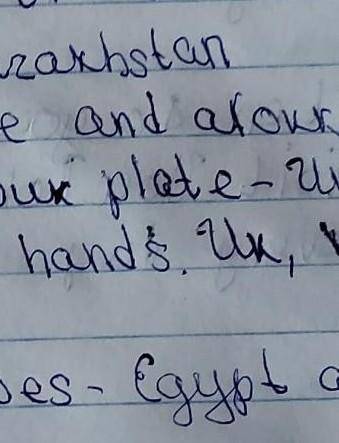 zakhstan
e and
our plate - U
hands. Uk,
oes - Egypt a